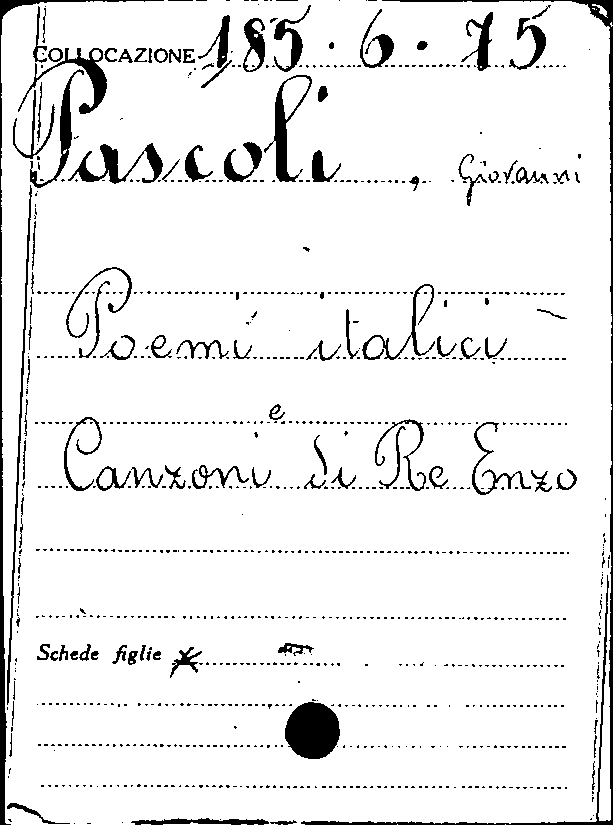 COLLOCAZIONE 185.6.75
Pascoli, Giovanni
Poemi italici
e
Canzoni di Re Enzo
Schede figlie